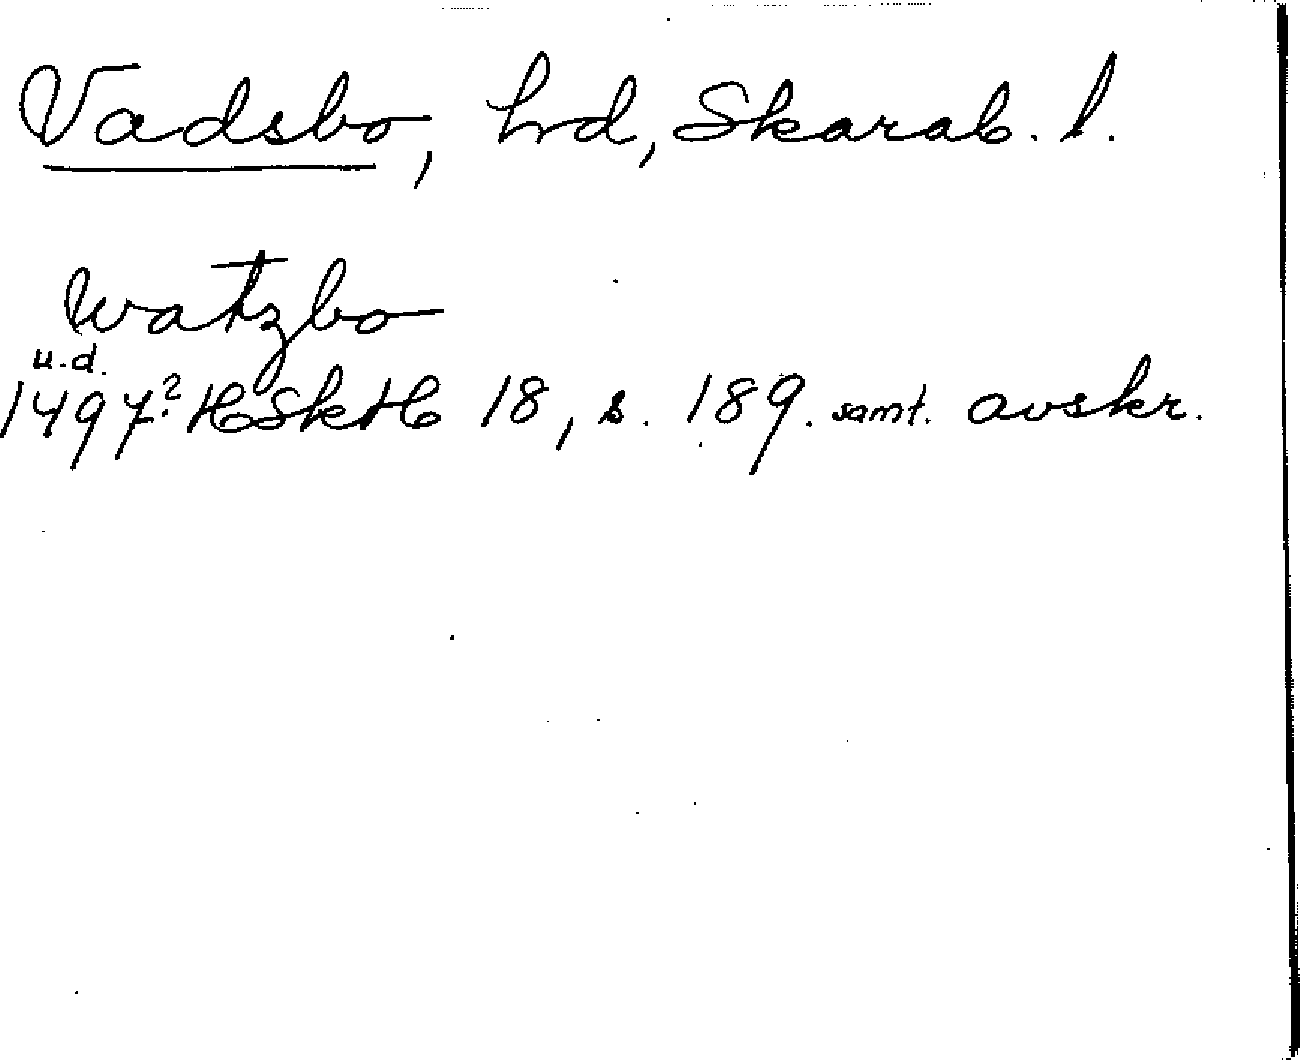 Vadsbo, hrd, Skarab. l.
Watzbo
u.d.
1497? HSkH 18, s. 189. samt. avskr.